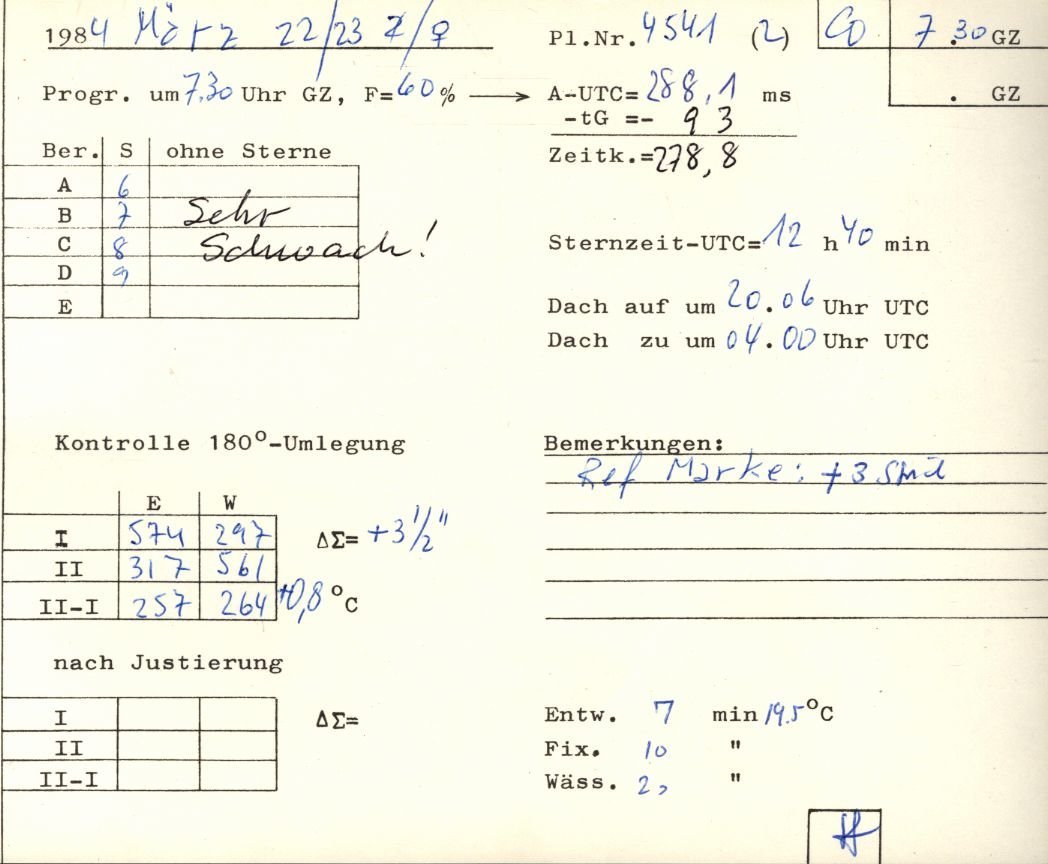 1984 März 22/23 ♃/♀ Pl.Nr. 4541 (2) CO 7.30 GZ
Progr. um 7.30 Uhr GZ, F= 60 % → A-UTC= 288,1 ms . GZ
-tG =- 9 3
Ber. S ohne Sterne Zeitk.= 278,8
A 6
B 7 Sehr
C 8 Schwach! Sternzeit-UTC= 12 h 40 min
D 9
E Dach auf um 20.06 Uhr UTC
Dach zu um 04.00 Uhr UTC
Kontrolle 180°-Umlegung Bemerkungen:
Ref Marke: +3
E W
I 574 297 ΔΣ= +3 1/2"
II 317 561
II-I 257 264 +0,8 °C
nach Justierung
I ΔΣ= Entw. 7 min 19.5 °C
II Fix. 10 "
II-I Wäss. "